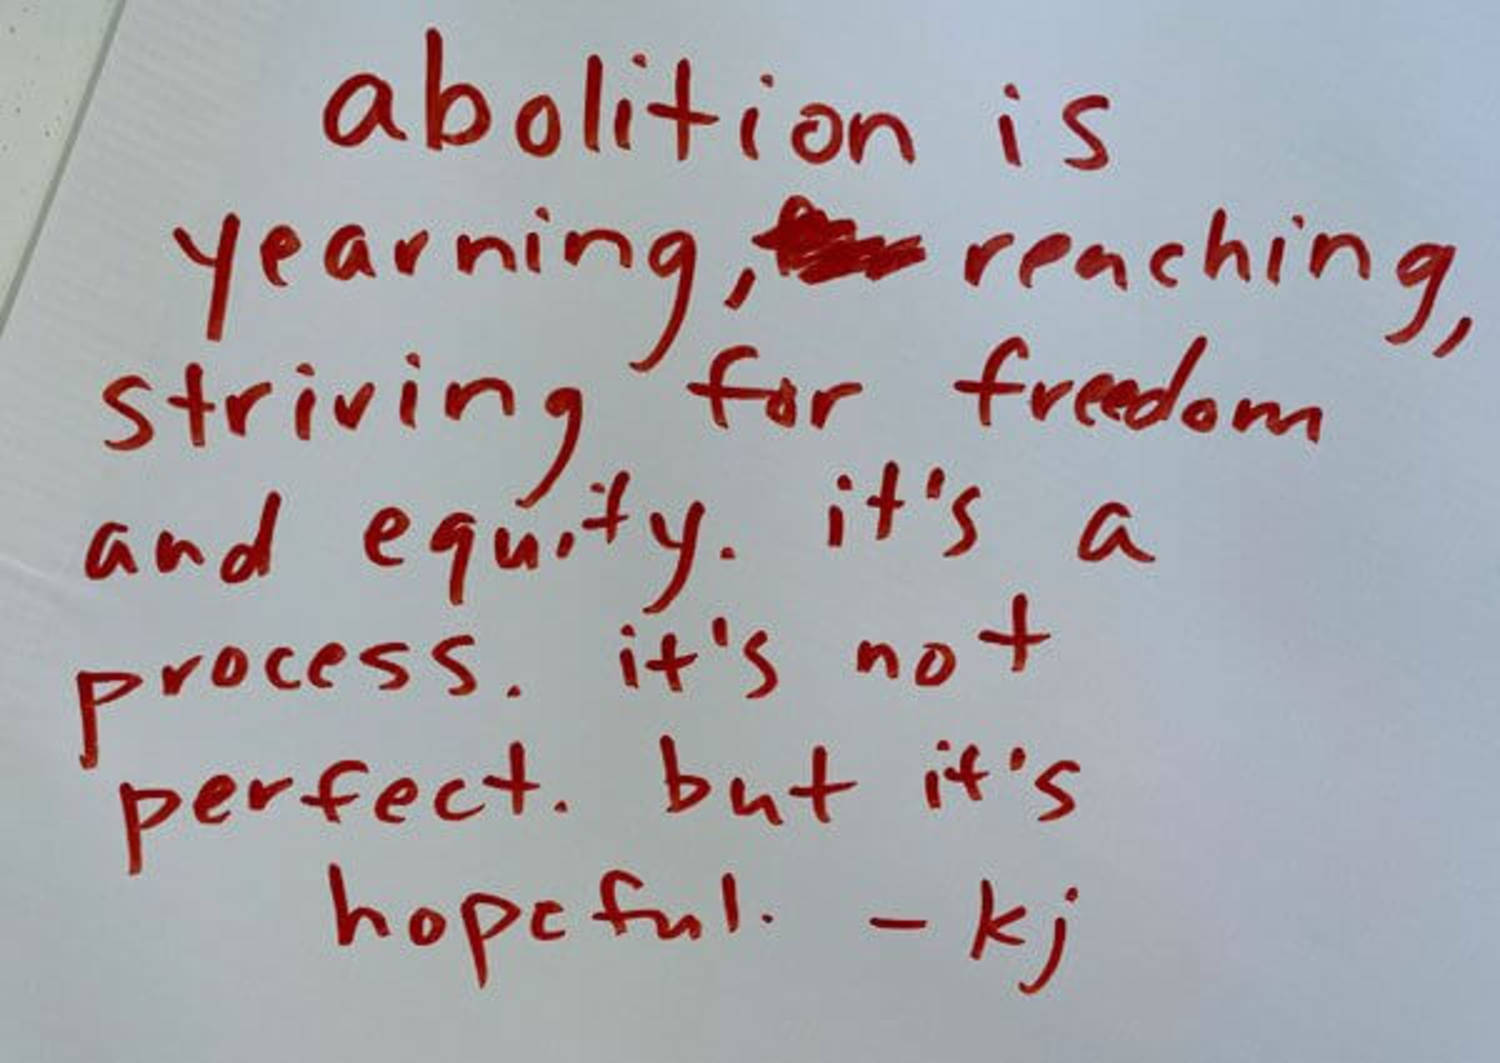 abolition is
yearning, reaching,
striving for freedom
and equity. it's a
process. it's not
perfect. but it's
hopeful. - kj